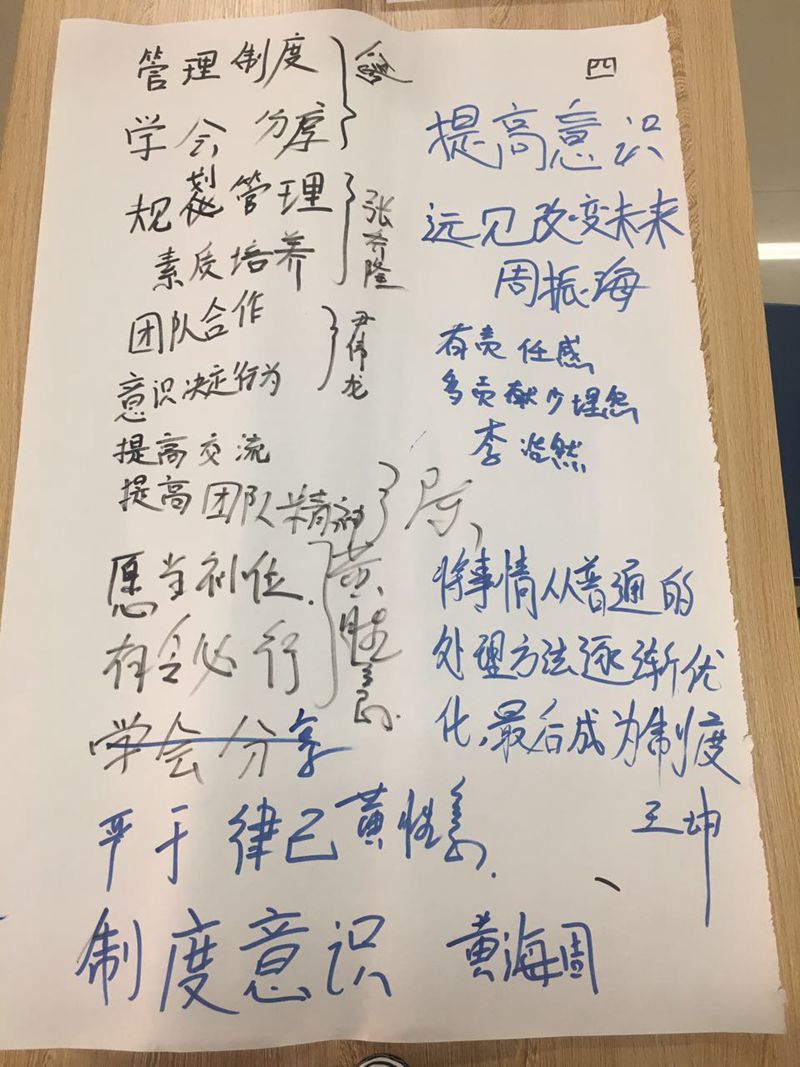 四
管理制度
学会分享
规划管理
素质培养
张希隆
团队合作
意识决定行为
尹伟龙
提高交流
提高团队精神
愿当初任.
有令必行
黄胜
学会分享
严于律己 黄胜
制度意识 黄海周
提高意识
远见改变未来
周振海
有责任感
多贡献少埋怨
李浩然
将事情从普通的
处理方法逐渐优
化,最后成为制度
王坤